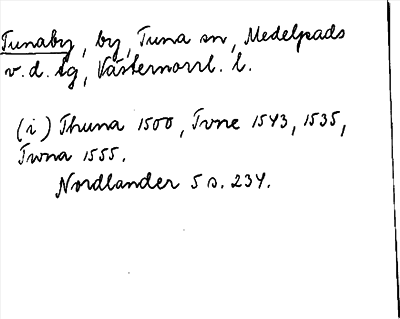 Tunaby, by, Tuna sn, Medelpads
v. d. tg, Västernorrl. l.
(i) Thuna 1500, Tvne 1543, 1535,
Twna 1555.
Nordlander 5 s. 234.